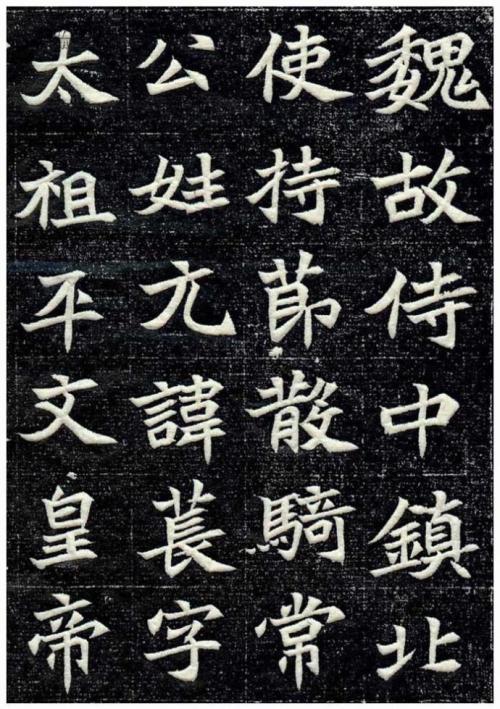 魏故侍中鎮北
使持莭散騎常
公姓元諱萇字
太祖平文皇帝